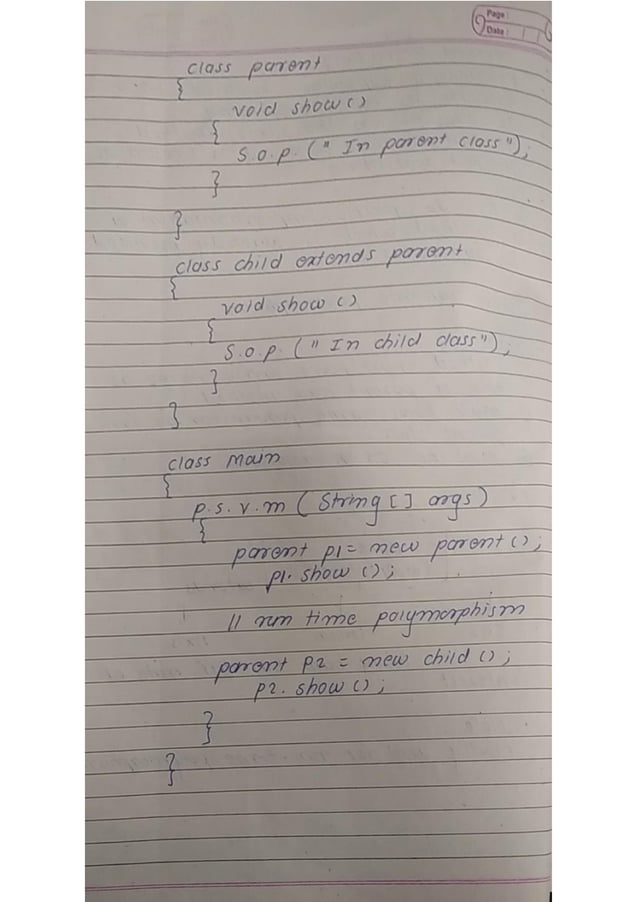 Page:
Date:
class parent
{
void show()
{
S.o.p. (" In parent class");
}
}
class child extends parent
{
void show ()
{
S.o.p. (" In child class");
}
}
class Main
{
p.s.v.m ( String [ ] args)
{
parent p1 = new parent ();
p1. show ();
// run time polymorphism
parent p2 = new child ();
p2. show ();
}
}